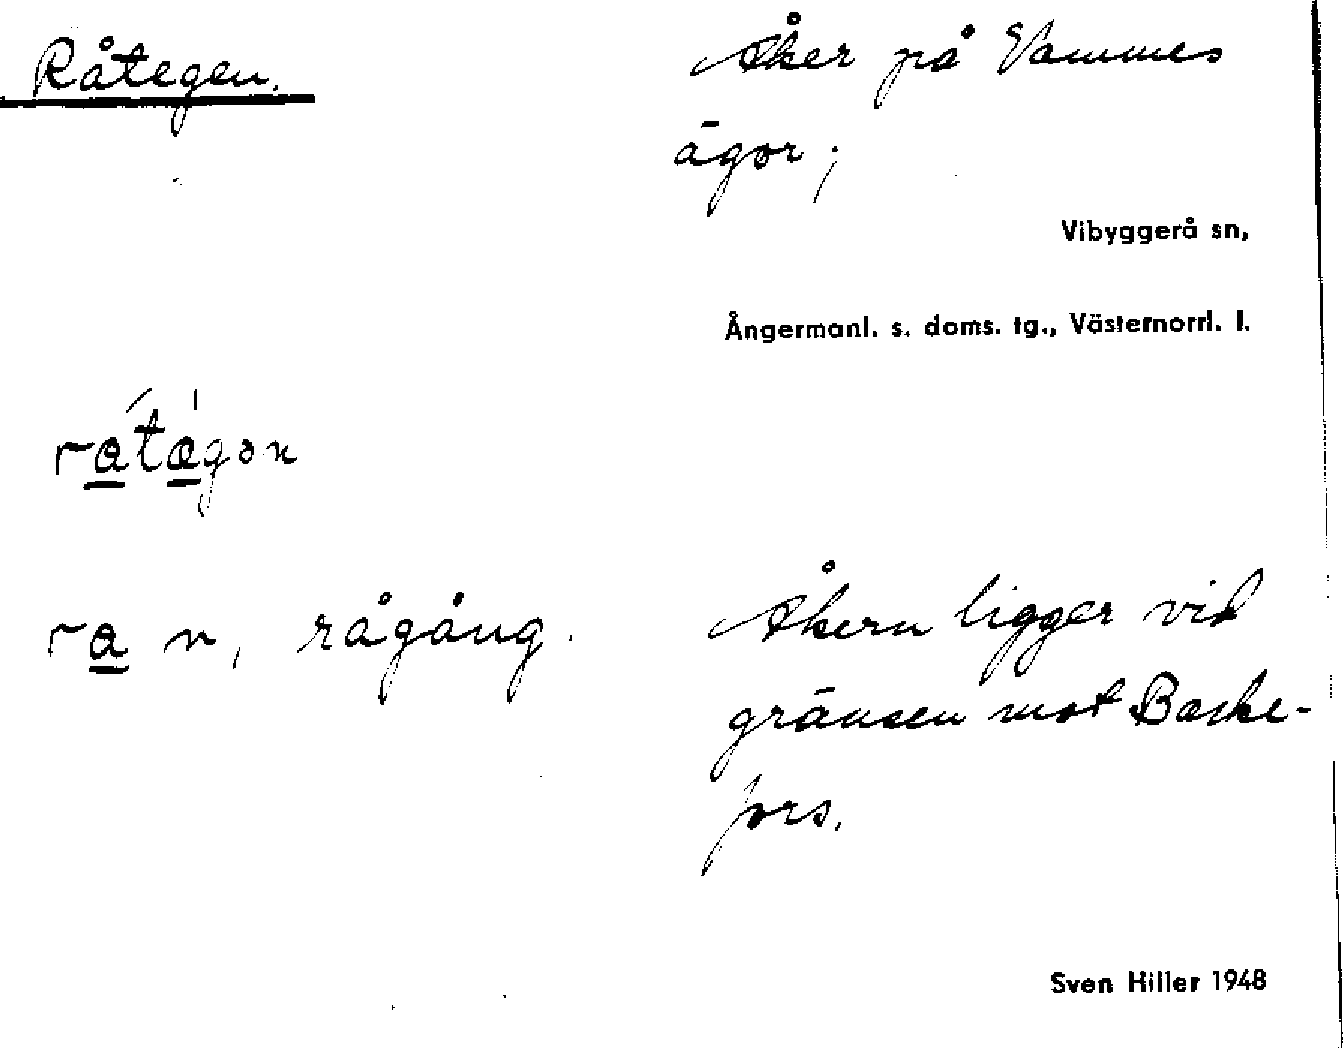 Råtegen.
Åker på Vammes
ägor;
Vibyggerå sn,
Ångermanl. s. doms. tg., Västernorrl. l.
ra̲´tæ̲ˈgən
ra̲ n, rågång.
Åkern ligger vid
gränsen mot Baske-
fors.
Sven Hiller 1948